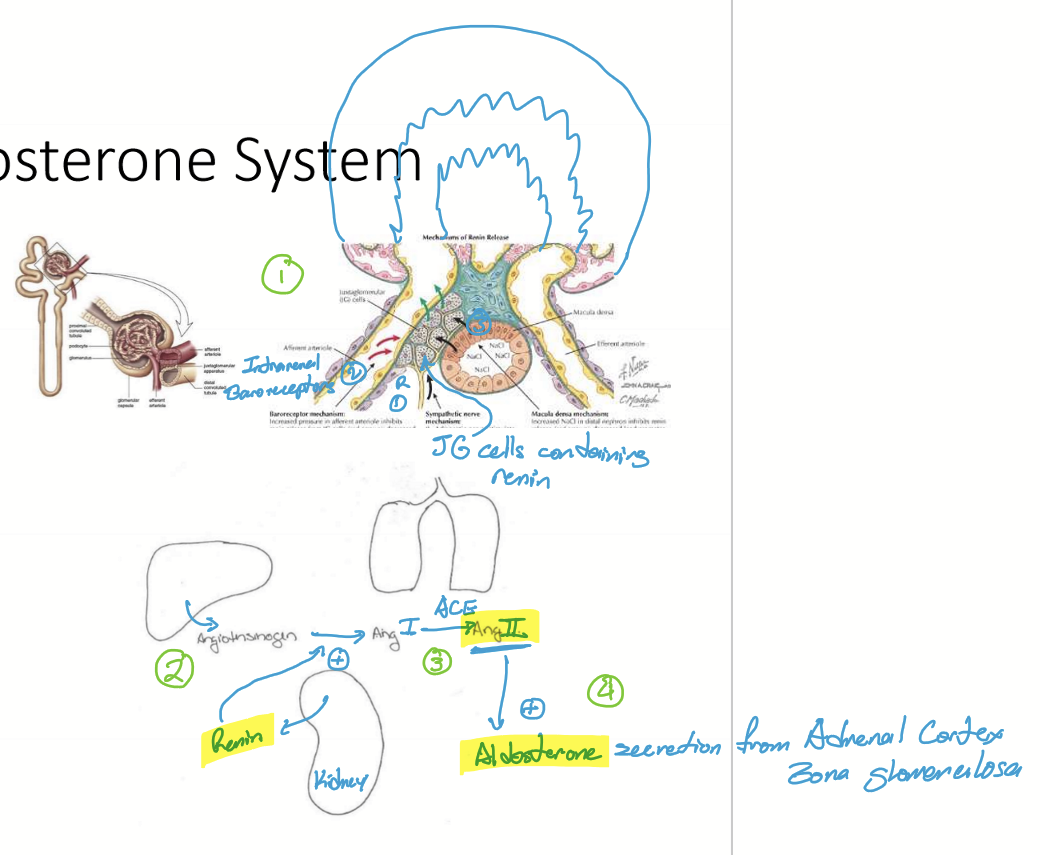 osterone System
Mechanisms of Renin Release
1
Juxtaglomerular
(JG) cells
Macula densa
3
NaCl
NaCl
NaCl
NaCl
Afferent arteriole
Efferent arteriole
proximal
convoluted
tubule
podocyte
glomerulus
afferent
arteriole
juxtaglomerular
apparatus
distal
convoluted
tubule
glomerular
capsule
efferent
arteriole
Intrarenal
Baroreceptors
2
R
1
JOHN A. CRAIG
Baroreceptor mechanism:
Increased pressure in afferent arteriole inhibits
Sympathetic nerve
mechanism:
Macula densa mechanism:
Increased NaCl in distal nephron inhibits renin
JG cells containing
renin
Angiotensinogen
Ang I
ACE
Ang II
2
+
3
4
Renin
Kidney
+
Aldosterone secretion from Adrenal Cortex
Zona glomerulosa